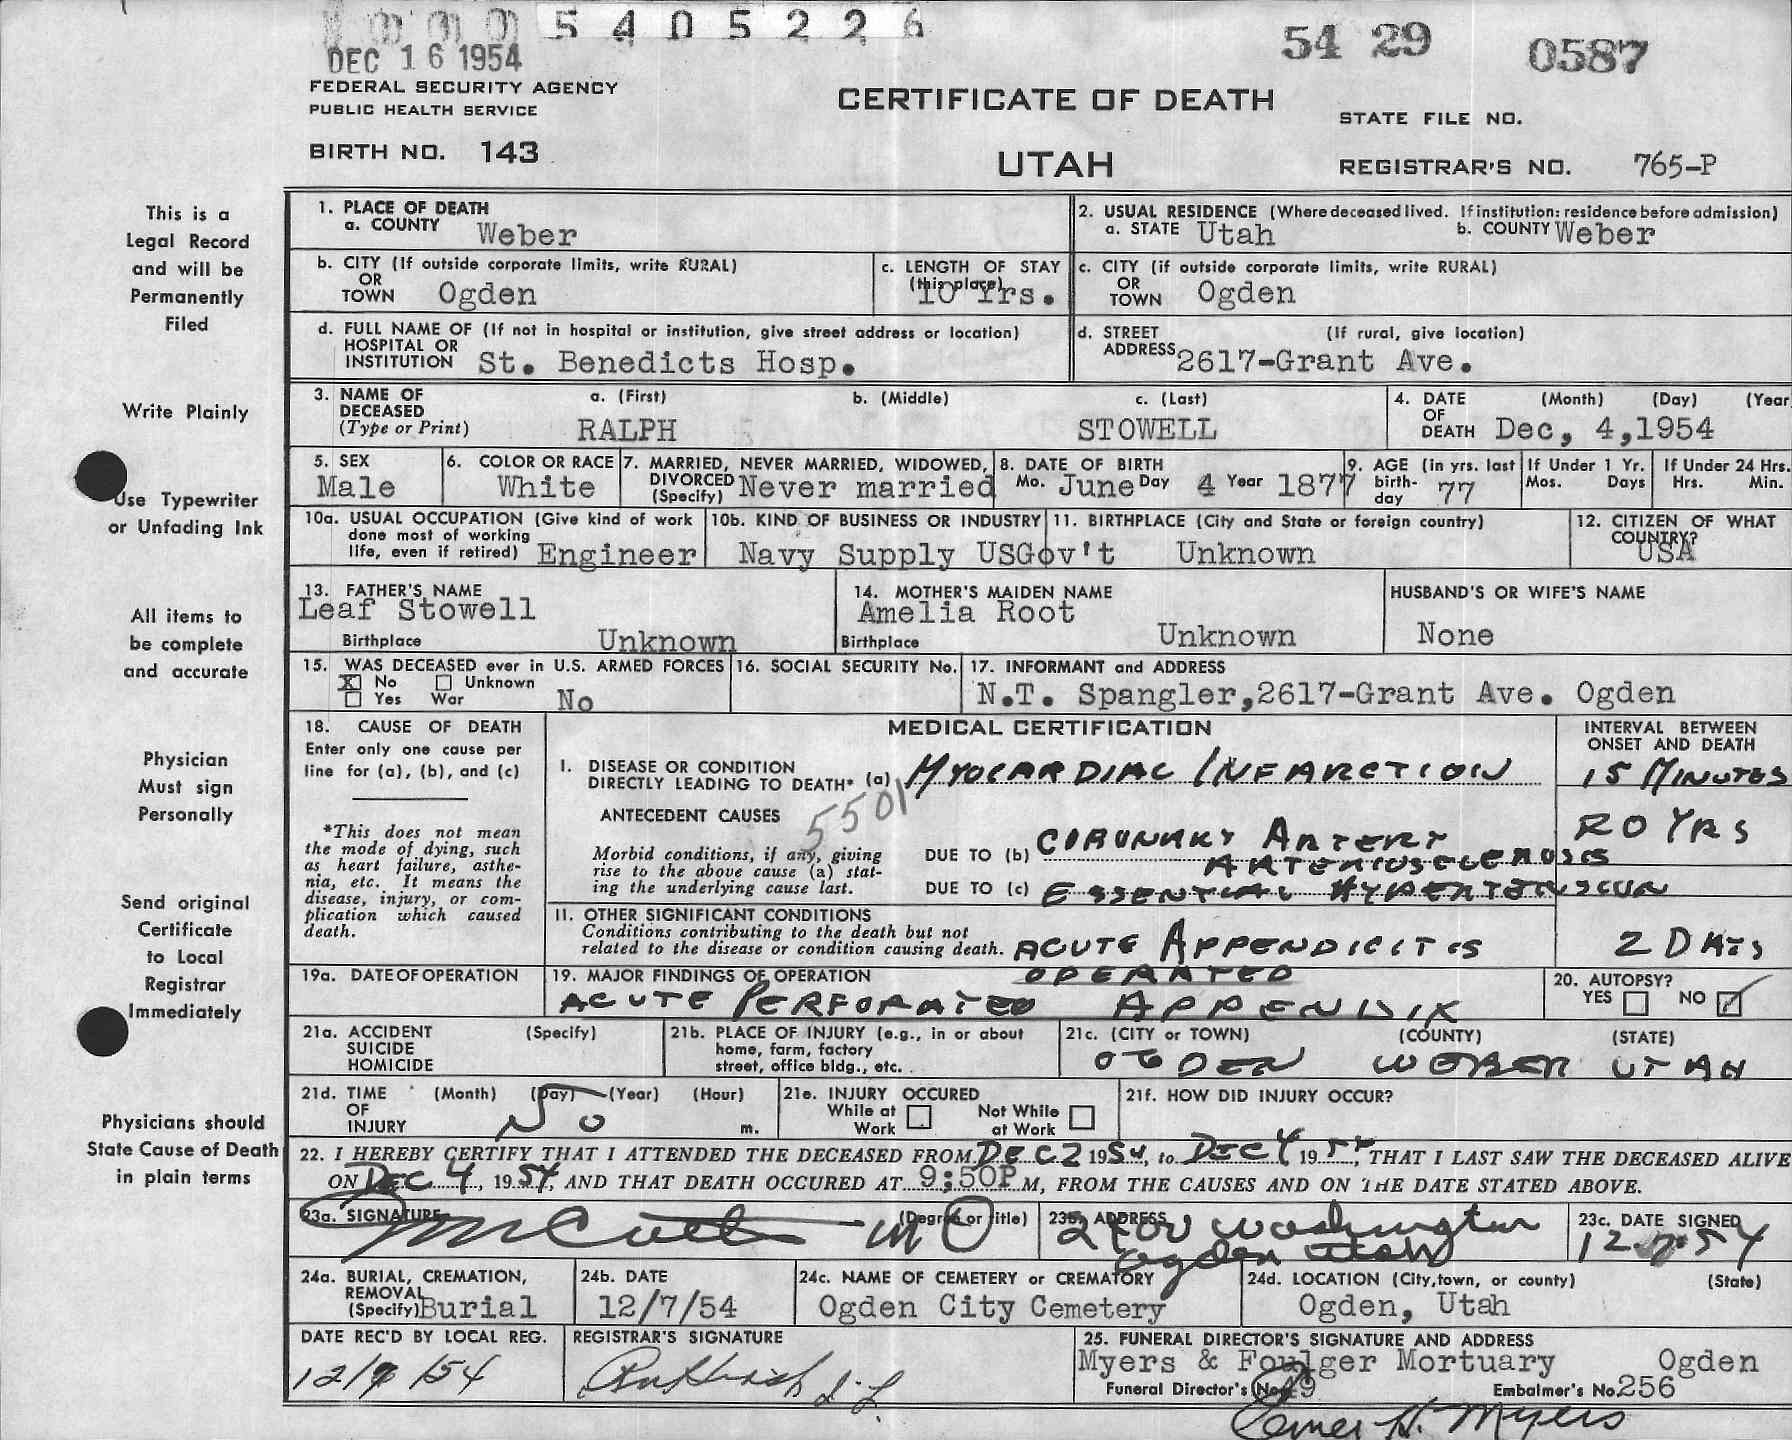 5405226
DEC 16 1954
54 29 0587
FEDERAL SECURITY AGENCY
PUBLIC HEALTH SERVICE
CERTIFICATE OF DEATH
STATE FILE NO.
BIRTH NO. 143
UTAH
REGISTRAR'S NO. 765-P
This is a
Legal Record
and will be
Permanently
Filed
Write Plainly
Use Typewriter
or Unfading Ink
All items to
be complete
and accurate
Physician
Must sign
Personally
Send original
Certificate
to Local
Registrar
Immediately
Physicians should
State Cause of Death
in plain terms
1. PLACE OF DEATH
a. COUNTY Weber
2. USUAL RESIDENCE (Where deceased lived. If institution: residence before admission)
a. STATE Utah b. COUNTY Weber
b. CITY (If outside corporate limits, write RURAL)
OR
TOWN Ogden
c. LENGTH OF STAY
(this place)
10 Yrs.
c. CITY (if outside corporate limits, write RURAL)
OR
TOWN Ogden
d. FULL NAME OF (If not in hospital or institution, give street address or location)
HOSPITAL OR
INSTITUTION St. Benedicts Hosp.
d. STREET (If rural, give location)
ADDRESS 2617-Grant Ave.
3. NAME OF
DECEASED
(Type or Print)
a. (First) b. (Middle) c. (Last)
RALPH STOWELL
4. DATE (Month) (Day) (Year
OF
DEATH Dec, 4,1954
5. SEX
Male
6. COLOR OR RACE
White
7. MARRIED, NEVER MARRIED, WIDOWED,
DIVORCED
(Specify) Never married
8. DATE OF BIRTH
Mo. June Day 4 Year 1877
9. AGE (in yrs. last
birth-
day 77
If Under 1 Yr.
Mos. Days
If Under 24 Hrs.
Hrs. Min.
10a. USUAL OCCUPATION (Give kind of work
done most of working
life, even if retired) Engineer
10b. KIND OF BUSINESS OR INDUSTRY
Navy Supply USGov't
11. BIRTHPLACE (City and State or foreign country)
Unknown
12. CITIZEN OF WHAT
COUNTRY?
USA
13. FATHER'S NAME
Leaf Stowell
Birthplace Unknown
14. MOTHER'S MAIDEN NAME
Amelia Root
Birthplace Unknown
HUSBAND'S OR WIFE'S NAME
None
15. WAS DECEASED ever in U.S. ARMED FORCES
X No Unknown
Yes War No
16. SOCIAL SECURITY No.
17. INFORMANT and ADDRESS
N.T. Spangler,2617-Grant Ave. Ogden
18. CAUSE OF DEATH
Enter only one cause per
line for (a), (b), and (c)
*This does not mean
the mode of dying, such
as heart failure, asthe-
nia, etc. It means the
disease, injury, or com-
plication which caused
death.
MEDICAL CERTIFICATION
INTERVAL BETWEEN
ONSET AND DEATH
I. DISEASE OR CONDITION
DIRECTLY LEADING TO DEATH* (a) MYOCARDIAL INFARCTION
15 MINUTES
5501
ANTECEDENT CAUSES
Morbid conditions, if any, giving
rise to the above cause (a) stat-
ing the underlying cause last.
DUE TO (b) CORONARY ARTERY
ARTERIOSCLEROSIS
20 YRS
DUE TO (c) ESSENTIAL HYPERTENSION
II. OTHER SIGNIFICANT CONDITIONS
Conditions contributing to the death but not
related to the disease or condition causing death. ACUTE APPENDICITIS
OPERATED
2 DAYS
19a. DATE OF OPERATION
19. MAJOR FINDINGS OF OPERATION
ACUTE PERFORATED APPENDIX
20. AUTOPSY?
YES NO
21a. ACCIDENT (Specify)
SUICIDE
HOMICIDE
21b. PLACE OF INJURY (e.g., in or about
home, farm, factory
street, office bldg., etc.
21c. (CITY or TOWN) (COUNTY) (STATE)
OGDEN WEBER UTAH
21d. TIME (Month) (Day) (Year) (Hour)
OF
INJURY m.
21e. INJURY OCCURED
While at Not While
Work at Work
21f. HOW DID INJURY OCCUR?
22. I HEREBY CERTIFY THAT I ATTENDED THE DECEASED FROM DEC 2 1954, to DEC 4 1954, THAT I LAST SAW THE DECEASED ALIVE
ON DEC 4, 1954, AND THAT DEATH OCCURED AT 9;50P M, FROM THE CAUSES AND ON THE DATE STATED ABOVE.
23a. SIGNATURE (Degree or title)
MD
23b. ADDRESS
Washington
Ogden Utah
23c. DATE SIGNED
12-7-54
24a. BURIAL, CREMATION,
REMOVAL
(Specify) Burial
24b. DATE
12/7/54
24c. NAME OF CEMETERY or CREMATORY
Ogden City Cemetery
24d. LOCATION (City,town, or county) (State)
Ogden, Utah
DATE REC'D BY LOCAL REG.
12/9/54
REGISTRAR'S SIGNATURE
25. FUNERAL DIRECTOR'S SIGNATURE AND ADDRESS
Myers & Foulger Mortuary Ogden
Funeral Director's No. 49 Embalmer's No. 256
Elmer H. Myers